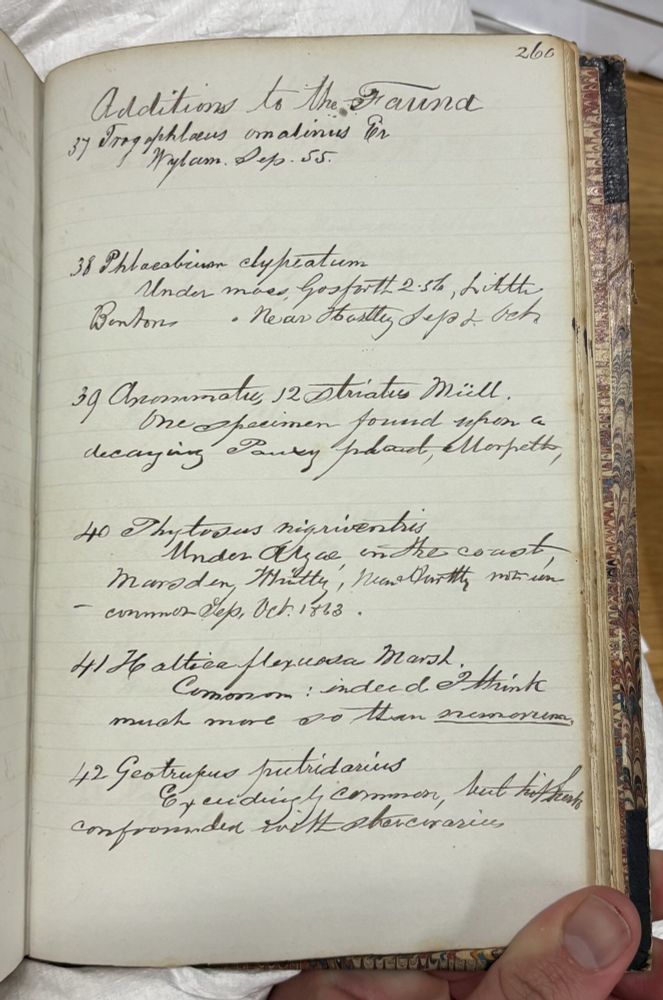 260
Additions to the Fauna
37 Trogophlaeus omalinus Er
Wylam. Sep. 55.
38 Phlaeobium clypeatum
Under moss, Gosforth 2.56, Little
Benton Near Sep & Oct.
39 Anommatus, 12 striatus Müll.
One specimen found upon a
decaying Pansy plant, Morpeth,
40 Phytosus nigriventris
Under Algae on the coast,
Marsden, Whitley, Near
– common Sep, Oct. 1863.
41 Haltica flexuosa Marsh.
Common: indeed I think
much more so than nemorum.
42 Geotrupus putridarius
Exceedingly common, but hitherto
confounded with stercorarius